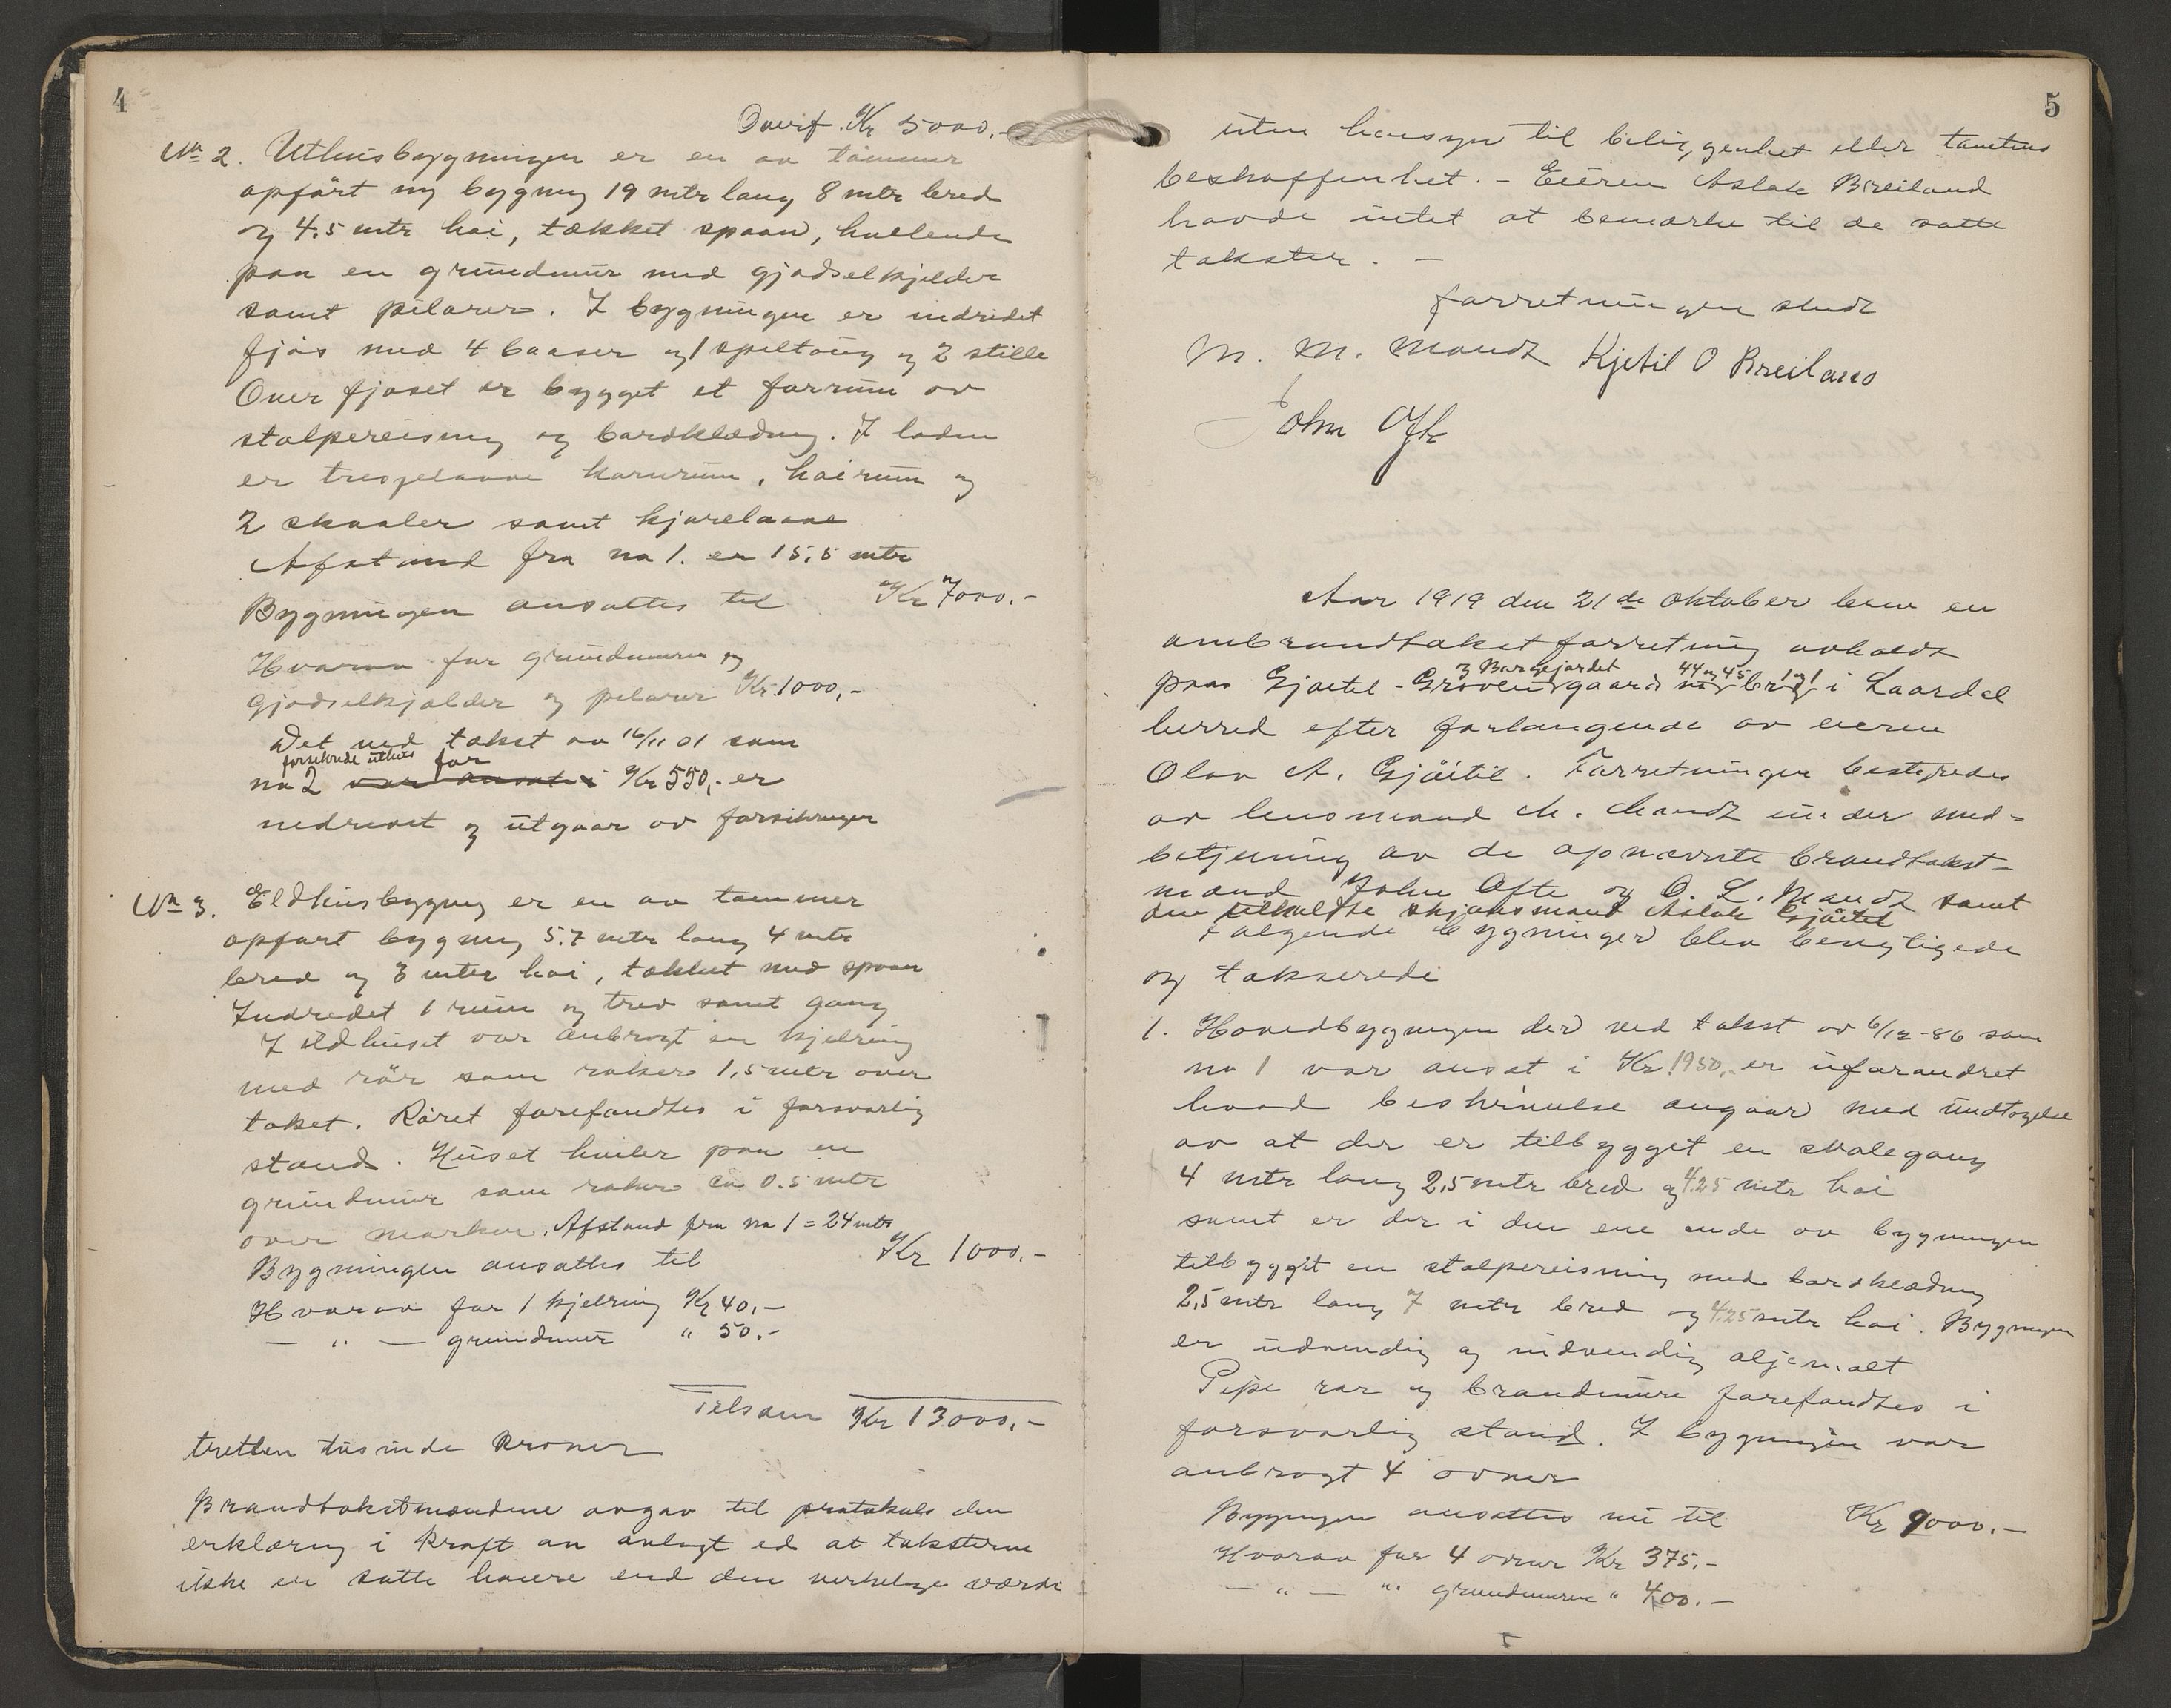 4
Overf. Kr 5000.-
No 2. Uthusbygningen er en av tømmer
opført ny bygning 19 mtr lang 8 mtr bred
og 4.5 mtr høi, tækket spaan, hvilende
paa en grundmur med gjødselkjelder
samt pilarer. I bygningen er indredet
fjøs med 4 baaser og 1 speltaug og 2 stille
Over fjøset er bygget et forrum av
stolpereisning og bordklædning. I loden
er treskelaave kornrum, høirum og
2 skaaler samt kjørelaave
Afstand fra no 1. er 15,5 mtr
Bygningen ansattes til Kr 7000.-
Hvorav for grundmuren og
gjødselkjelder og pilarer Kr 1000,-
Det ved takst av 16/11 01 som
forsikrede uthus for
no 2 var ansat i Kr 550,- er
nedrevet og utgaar av forsikringen
No 3. Eldhusbygning er en av tømmer
opført bygning 5.7 mtr lang 4 mtr
bred og 3 mter høi, tækket med spaan
Indredet 1 rum og trev samt gang
I eldhuset var anbragt en kjelring
med rør som raker 1,5 mtr over
taket. Røret forefandtes i forsvarlig
stand. Huset hviler paa en
grundmur som raker ca 0.5 mtr
over marken. Afstand fra no 1 = 24 mtr
Bygningen ansattes til Kr 1000.-
Hvorav for 1 kjelring Kr 40,-
— " — grundmur " 50.-
Tilsam Kr 13000,-
tretten tusinde Kroner
Brandtakstmændene avgav til protokols den
erklæring i kraft av avlagt ed at taksterne
ikke er satte høiere end den virkelige værdi
5
uten hensyn til beliggenhet eller tomtens
beskaffenhet. - Eieren Aslak Breiland
havde intet at bemærke til de satte
takster. -
forretningen slut
M. M. Mandt Kjetil O Breiland
John Ofte
Aar 1919 den 21de oktober blev en
ombrandtakstforretning avholdt
3 Bergjordet 44 og 45 1 og 1
paa Gjøitil - Groven gaard no br. i Laardal
herred efter forlangende av eieren
Olav A. Gjøitil. Forretningen bestyredes
av lensmand M. Mandt under med-
betjening av de opnævnte brandtakst-
mænd John Ofte og O. L. Mandt samt
den tilkaldte skjønsmand Aslak Gjøitil
Følgende bygninger blev besigtigede
og takserede
1. Hovedbygningen der ved takst av 6/12-86 som
no 1 var ansat i Kr. 1950,- er uforandret
hvad beskrivelse angaar med undtagelse
av at der er tilbygget en svalegang
4 mtr lang 2,5 mtr bred og 4.25 mtr høi
samt er der i den ene ende av bygningen
tilbygget en stolpereisning med bordklædning
2,5 mtr lang 7 mtr bred og 4.25 mtr høi. Bygningen
er udvendig og indvendig oljemalt
Pipe rør og brandmure forefandtes i
forsvarlig stand. I bygningen var
anbragt 4 ovner
Bygningen ansattes nu til Kr 9000.-
Hvorav for 4 ovner Kr 375.-
— " — " grundmuren " 400.-